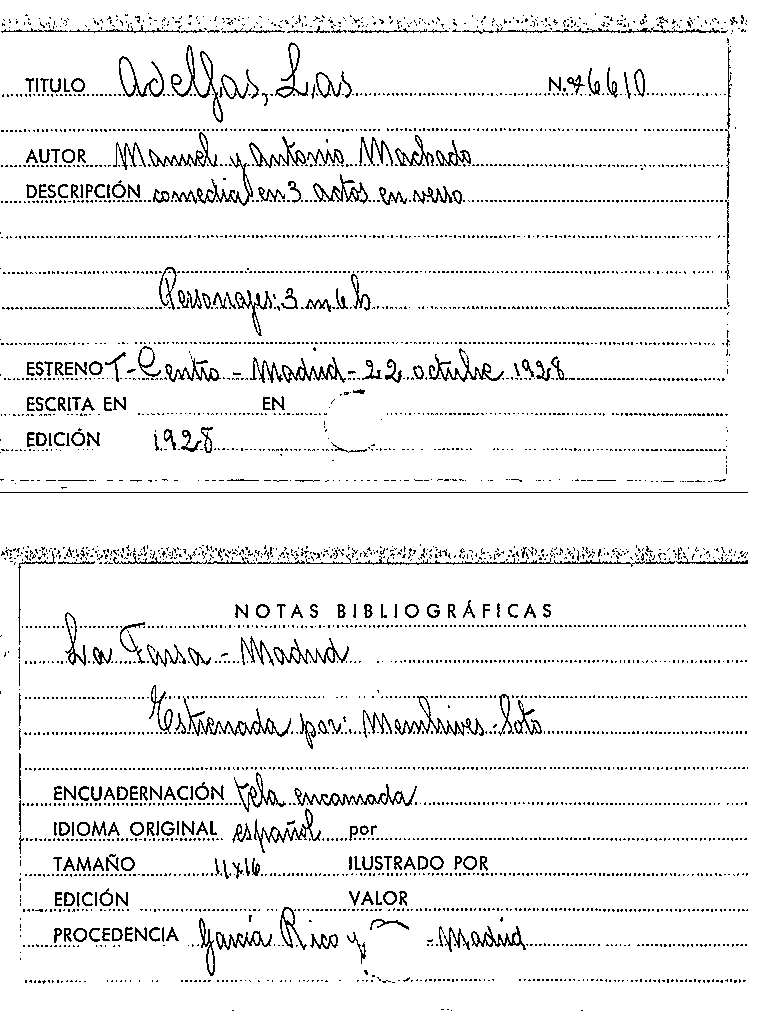 TITULO Adelfas, Las N.º 6610
AUTOR Manuel y Antonio Machado
DESCRIPCIÓN comedia en 3 actos en verso
Personajes: 3 m 6 h
ESTRENO T-Centro - Madrid - 22 octubre 1928
ESCRITA EN EN
EDICIÓN 1928
NOTAS BIBLIOGRÁFICAS
La Farsa - Madrid
Estrenada por: Membrives-Soto
ENCUADERNACIÓN tela encarnada
IDIOMA ORIGINAL español por
TAMAÑO 11x16 ILUSTRADO POR
EDICIÓN VALOR
PROCEDENCIA García Rico y - Madrid